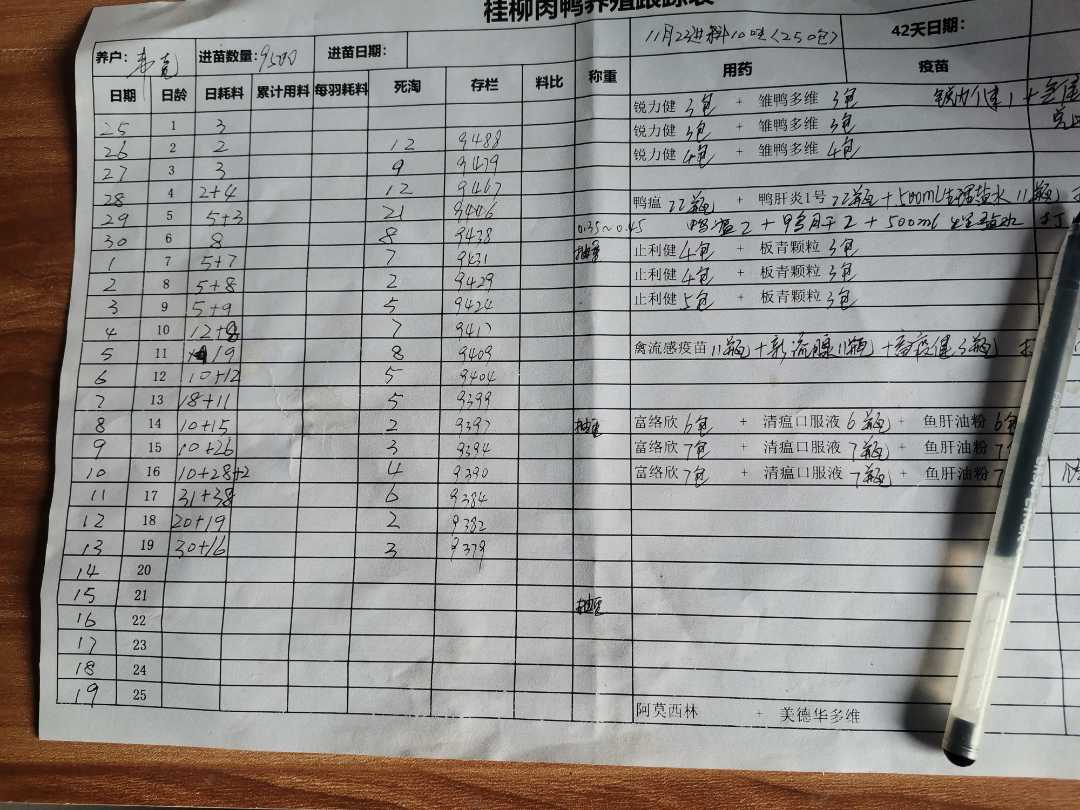 桂柳肉鸭养殖跟踪表
养户： 进苗数量：9500 进苗日期： 11月23进料10吨（250包） 42天日期：
日期 日龄 日耗料 累计用料 每羽耗料 死淘 存栏 料比 称重 用药 疫苗
25 1 3 锐力健 3包 + 雏鸭多维 3包 锐力健 1 +
26 2 2 12 9488 锐力健 3包 + 雏鸭多维 3包
27 3 3 9 9479 锐力健 4包 + 雏鸭多维 4包
28 4 2+4 12 9467 鸭瘟 22瓶 + 鸭肝炎1号 22瓶 + 500ml生理盐水 11瓶
29 5 5+3 21 9446 0.35~0.45 鸭瘟 2 + 鸭肝 2 + 500ml 生理盐水 打
30 6 8 8 9438
1 7 5+7 7 9431 止利健 4包 + 板青颗粒 3包
2 8 5+8 2 9429 止利健 4包 + 板青颗粒 3包
3 9 5+9 5 9424 止利健 5包 + 板青颗粒 3包
4 10 12+8 7 9417
5 11 19 8 9409 禽流感疫苗 11瓶 + 新流腺 11瓶 + 3瓶
6 12 10+12 5 9404
7 13 18+11 5 9399
8 14 10+15 2 9397 抽重 富络欣 6包 + 清瘟口服液 6瓶 + 鱼肝油粉 6包
9 15 10+26 3 9394 富络欣 7包 + 清瘟口服液 7瓶 + 鱼肝油粉 7
10 16 10+28+2 4 9390 富络欣 7包 + 清瘟口服液 7瓶 + 鱼肝油粉 7
11 17 31+38 6 9384
12 18 20+19 2 9382
13 19 30+16 3 9379
14 20
15 21 抽重
16 22
17 23
18 24
19 25 阿莫西林 + 美德华多维